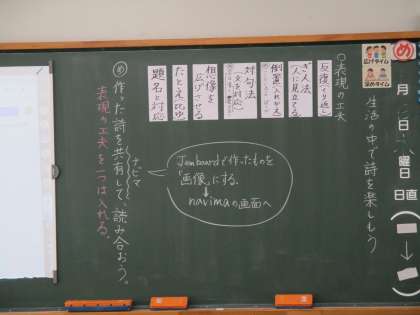 め
広げタイム
深めタイム
月
日
曜日
日直
生活の中で詩を楽しもう
○表現の工夫
反復(くり返し)
ぎ人法
(人に見立てる)
倒置(入れかえ)
対句法
(文を対応)
想像を
広げさせる
たとえ・比ゆ
題名と対応
Jamboardで作ったものを
「画像」にする。
↓
navimaの画面へ
ナビマ
め 作った詩を共有して、読み合おう。
表現の工夫を一つは入れる。